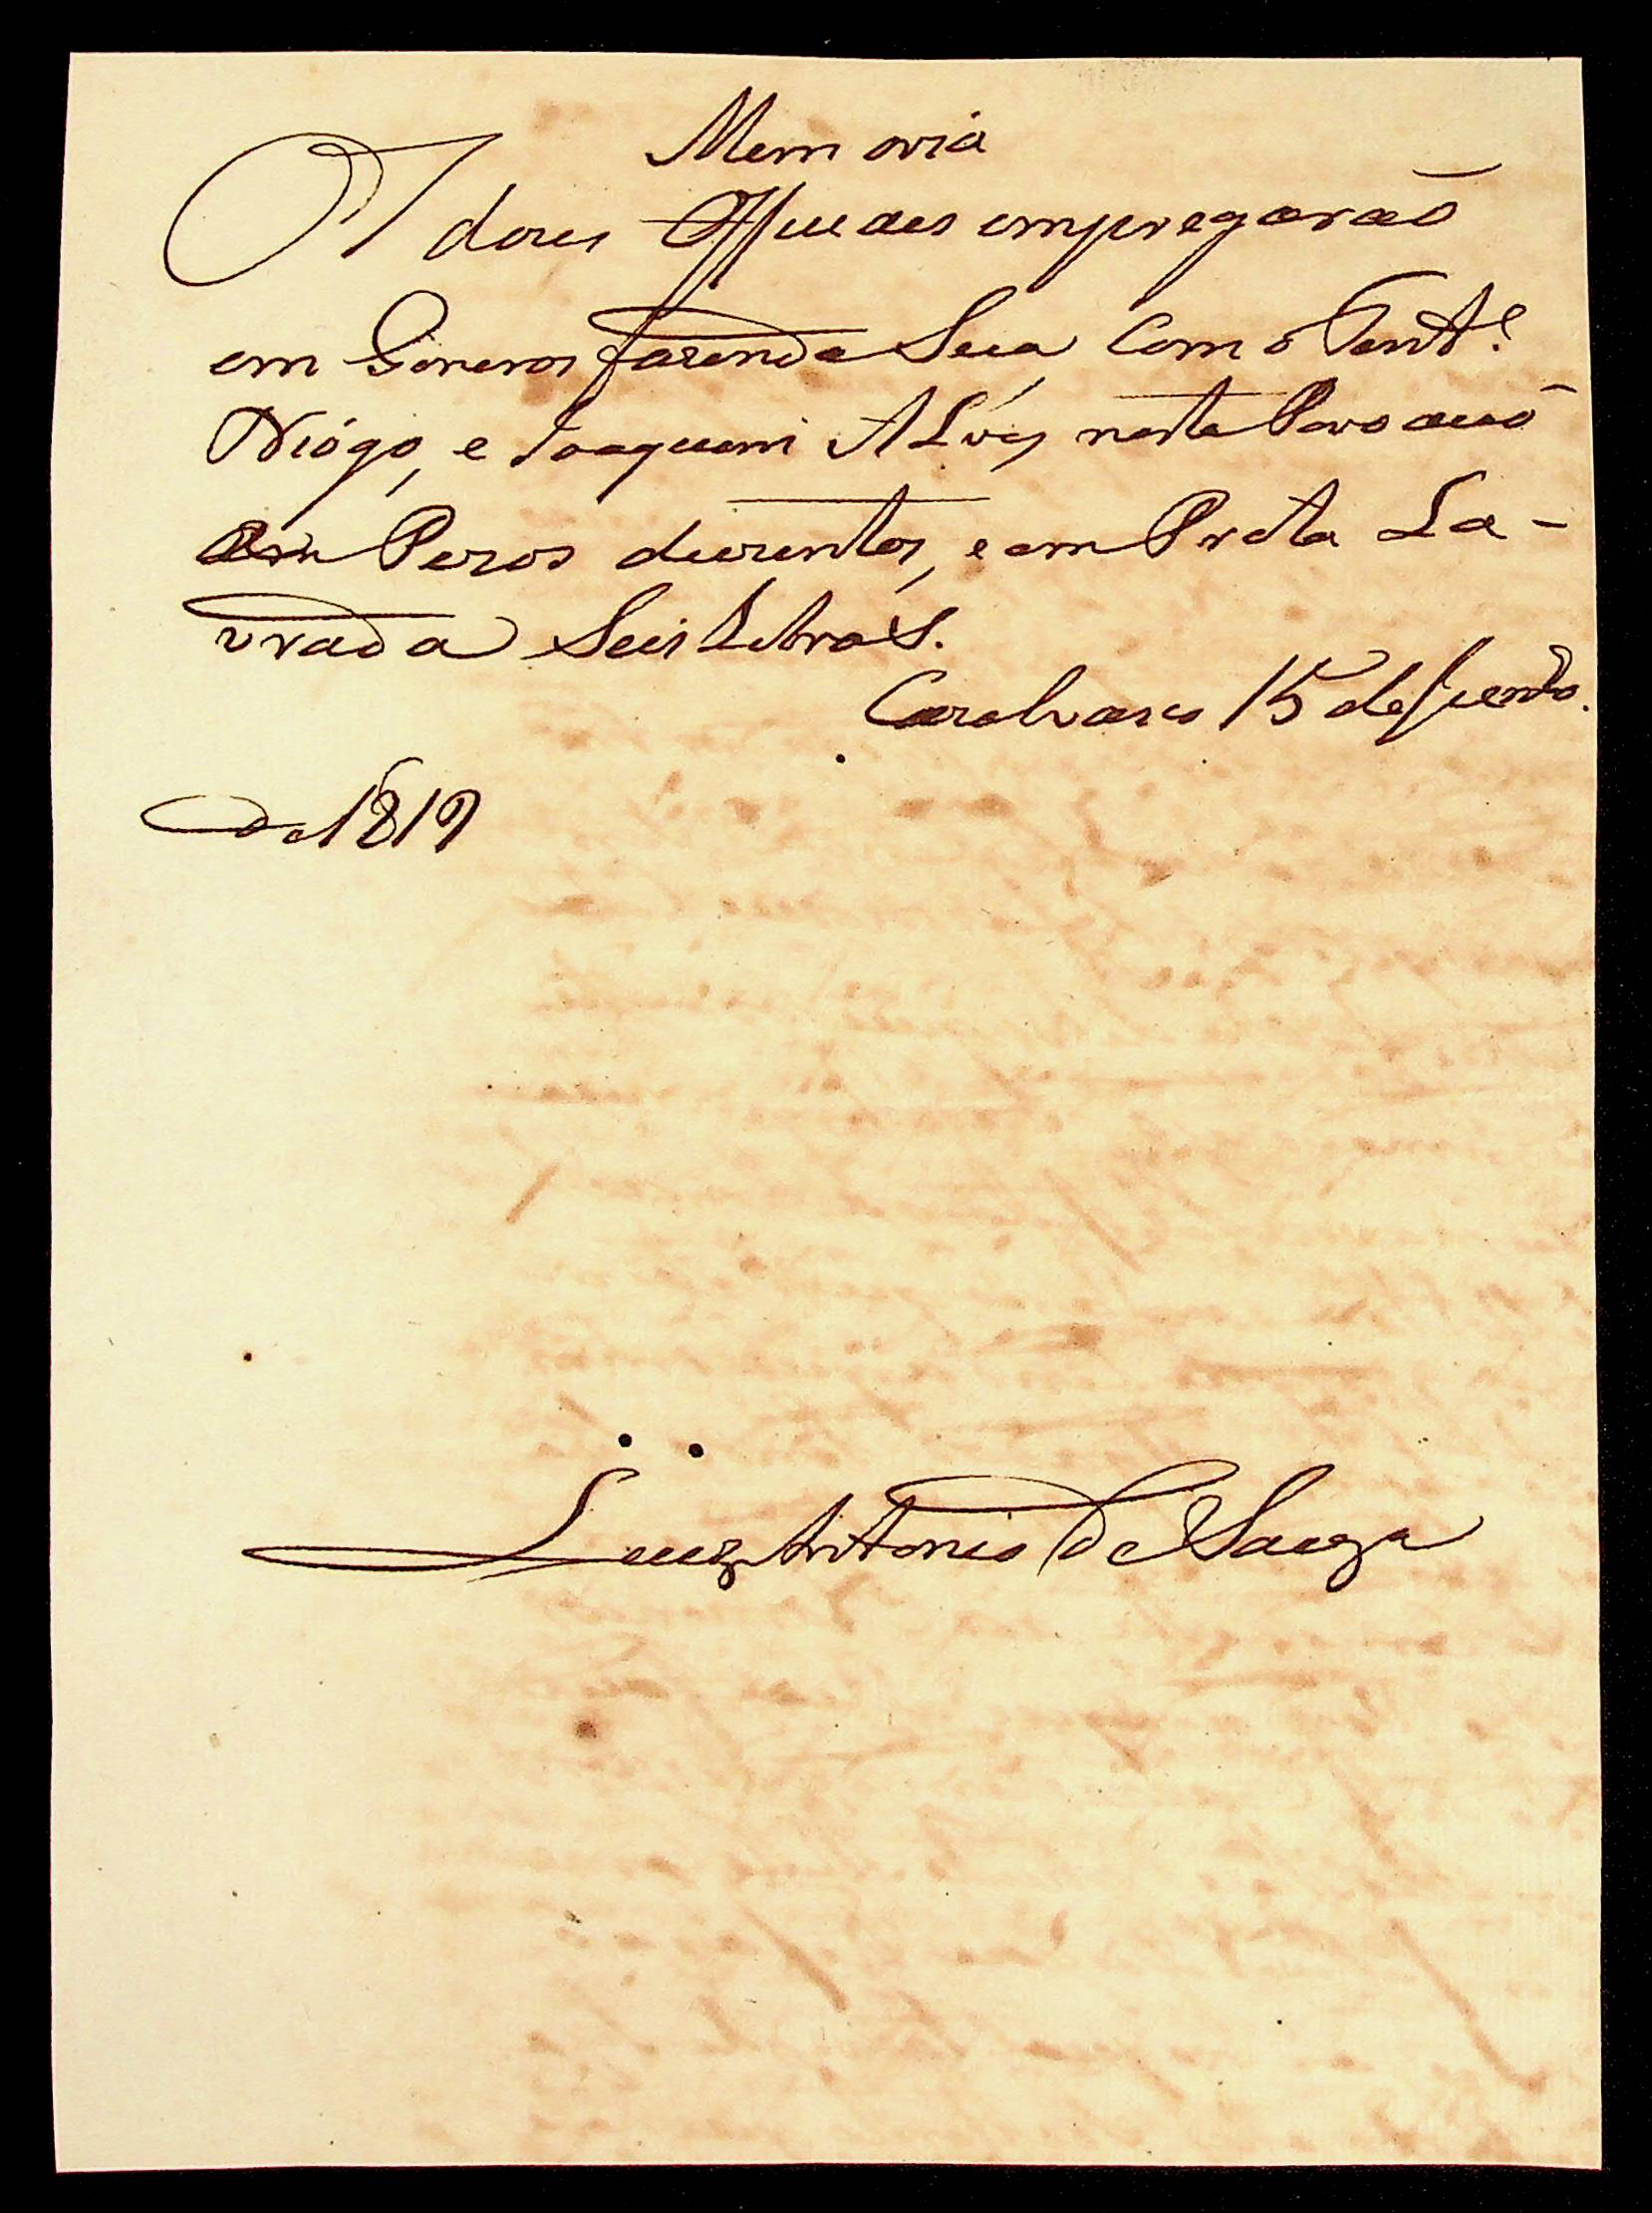 Memoria
Os dous Officiaes empregaraõ
em Generos fazenda Seca Com o Tent.e
Diógo, e Joaquim Alvẽs nesta Povoaçaõ
Em Pezos duzentos, e em Prata La-
vrada Seis Libras.
15 de Junho
de 1819
Luiz Antonio de Souza